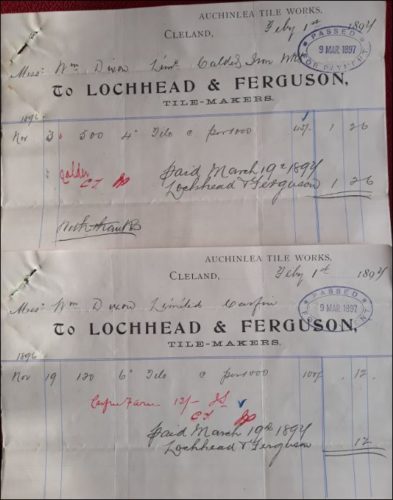 AUCHINLEA TILE WORKS.
CLELAND, Feby 1st 1897
PASSED
9 MAR.1897
FOR PAYMENT
Messrs Wm Dixon Limd. Calder Iron Wks
To LOCHHEAD & FERGUSON,
TILE-MAKERS.
1896
Nov 3 500 4" Tile @ per 1000 45/- 1 2 6
Calder
Paid March 19th 1897
Lochhead & Ferguson 1 2 6
AUCHINLEA TILE WORKS.
CLELAND, Feby 1st 1897
PASSED
9 MAR.1897
Messrs Wm Dixon Limited Carfin
To LOCHHEAD & FERGUSON,
TILE-MAKERS.
1896
Nov 19 120 6" Tile @ per 1000 100/- . 12 .
Carfin Farm 12/-
Paid March 19th 1897
Lochhead & Ferguson 12